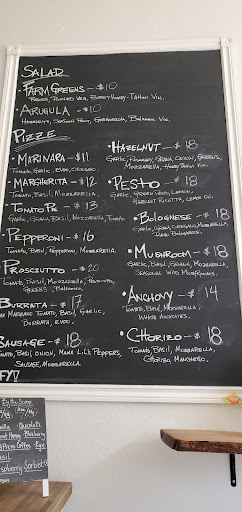 SALAD
FARM GREENS - $10
ARUGULA - $10
HAZELNUTS, SEASON FRUIT, GORGONZOLA, BALSAMIC VIN.
PIZZE
• MARINARA - $11
TOMATO, GARLIC, EVOO, OREGANO
• MARGHERITA - $12
TOMATO, BASIL, MOZZARELLA
• TOMATO PIE - $13
GARLIC, GRANA, BASIL, MOZZARELLA, TOMATO
PEPPERONI - $16
TOMATO, BASIL, PEPPERONI, MOZZARELLA
PROSCIUTTO - $20
TOMATO, BASIL, MOZZARELLA, PROSCIUTTO,
GREENS, BALSAMIC
BURRATA - $17
TOMATO, BASIL, GARLIC,
BURRATA, EVOO
SAUSAGE - $18
TOMATO, BASIL, ONION, MAMA LIL'S PEPPERS,
SAUSAGE, MOZZARELLA
• HAZELNUT - $18
GARLIC, ROSEMARY, GRANA, ONION, GREENS,
MOZZARELLA, HAZELNUT
• PESTO - $18
GARLIC, LEMON,
HAZELNUT, RICOTTA, LEMON OIL
• BOLOGNESE - $18
GARLIC, GRANA, ONION, MOZZARELLA,
BOLOGNESE
• MUSHROOM - $18
GARLIC, BASIL, GRANA, MOZZARELLA,
SEASONAL WILD MUSHROOMS
• ANCHOVY - $14
TOMATO, BASIL, MOZZARELLA,
WHITE ANCHOVIES
• CHORIZO - $18
TOMATO, BASIL, MOZZARELLA,
CHORIZO, MANCHEGO
FY!
By the Scoop
Chocolate
Blueberry
Coffee
Sorbet